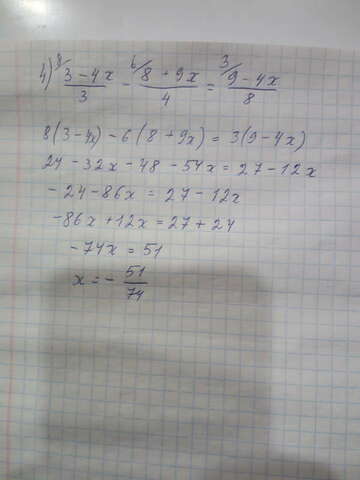 4) 8/ 3-4x/3 - 6/ 8+9x/4 = 3/ 9-4x/8
8(3-4x)-6(8+9x)=3(9-4x)
24-32x-48-54x=27-12x
-24-86x=27-12x
-86x+12x=27+24
-74x=51
x=-51/74